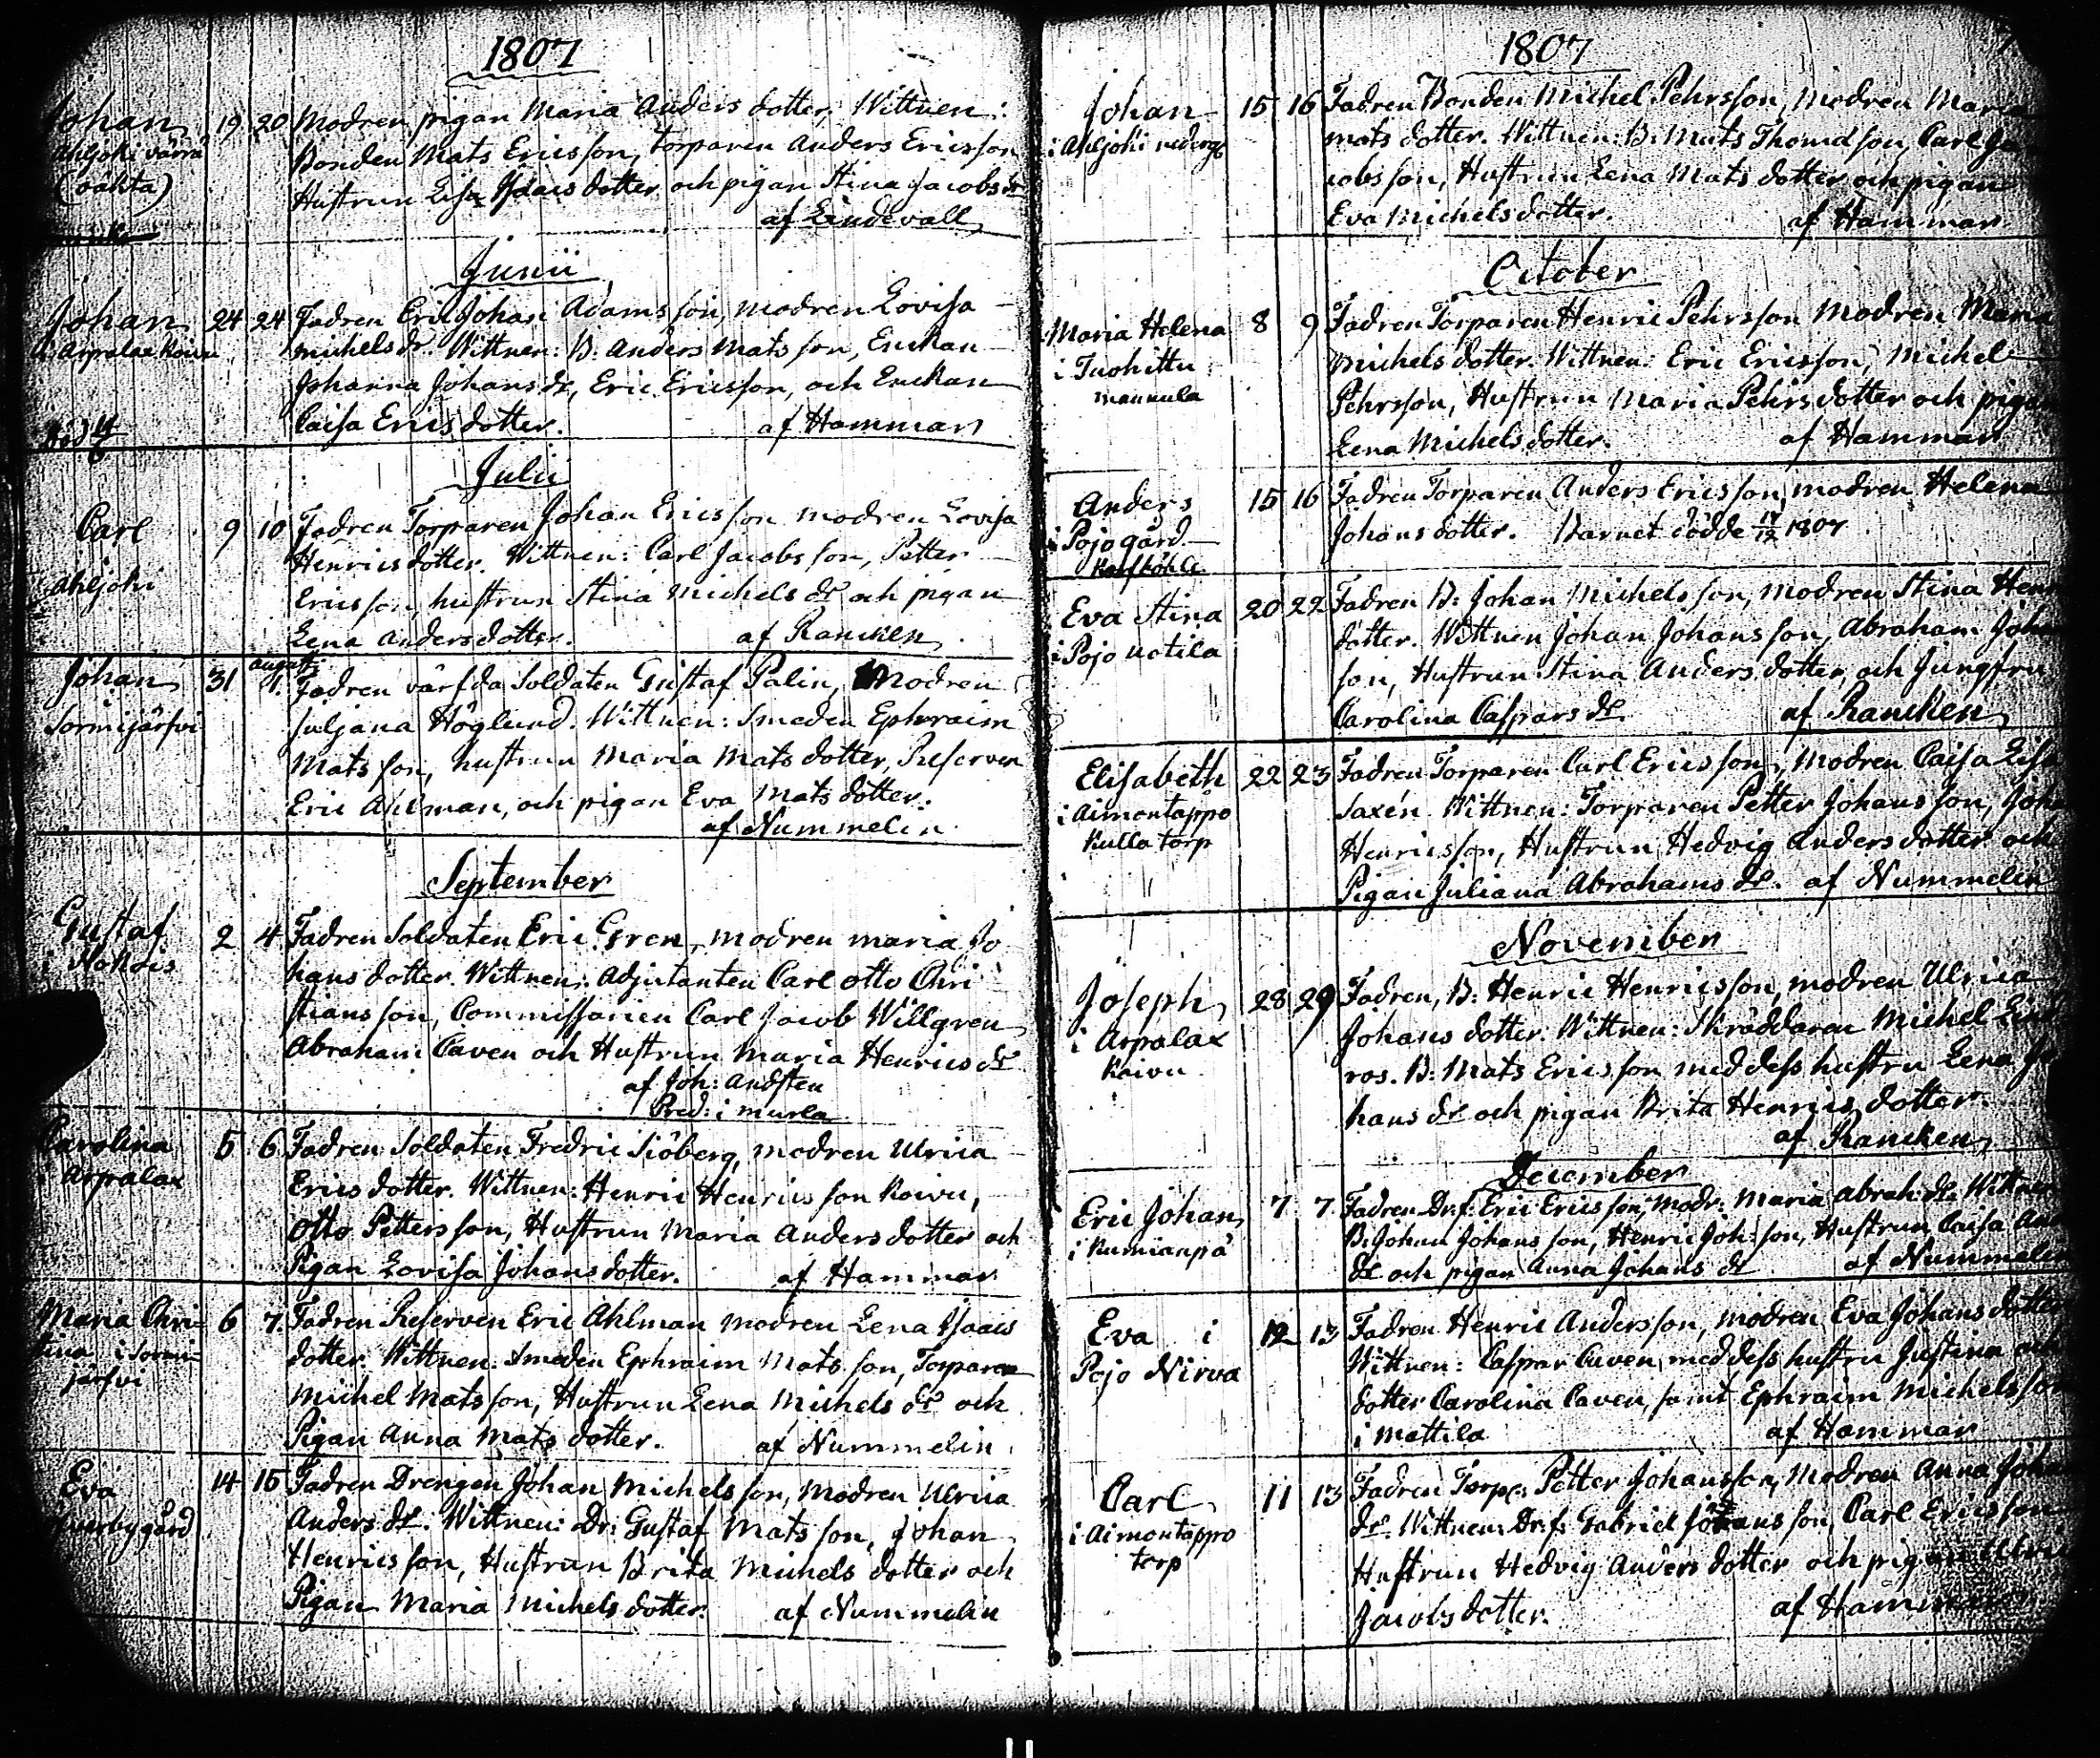 1807
Johan 19 20 Modren pigan Maria Anders dotter, Wittnen:
Ahljoki värrä Bonden Mats Ericsson, Torparen Anders Ericsson
(oäkta) Hustrun Lisa Isaacs dotter och pigan Stina Jacobs dr
af Lindevall
Junii
Johan 24 24 Fadren Eric Johan Adamsson, modren Lovisa
i Arpalax Koivu michels dr. Wittnen: B: Anders Matsson, Enckan
Johanna Johans dr, Eric Ericsson, och Enckan
Caisa Erics dotter. af Hammar
Julii
Carl 9 10 Fadren Torparen Johan Ericsson modren Lovisa
Henrics dotter. Wittnen: Carl Jacobsson, Petter
Ahljoki Ericsson, hustrun Stina Michels dr och pigan
Lena Anders dotter. af Rancken
Johan 31 augusti 1. Fadren värfda Soldaten Gustaf Palin, Modren
Sormijärfvi Juljana Höglund. Wittnen: Smeden Ephraim
Matsson, hustrun Maria Mats dotter, Reserven
Eric Ahlman, och pigan Eva Mats dotter.
af Nummelin
September
Gustaf 2 4 Fadren Soldaten Eric Gren, modren maria Jo
i hans dotter. Wittnen: Adjutanten Carl Otto Chri
stiansson, Commissarien Carl Jacob Willgren
Abraham Caven och Hustrun Maria Henrics dr
af Joh: Andsten
Pred: i murla
Carolina 5 6 Fadren Soldaten Fredric Siöberg, modren Ulrica
i Arpalax Erics dotter. Wittnen: Henric Henricsson Koivu,
Otto Pettersson, Hustrun Maria Anders dotter och
Pigan Lovisa Johans dotter. af Hammar
Maria Chri- 6 7. Fadren Reserven Eric Ahlman modren Lena Isaacs
stina i Sormi- dotter. Wittnen: Smeden Ephraim Matsson, Torparen
järfvi Michel Matsson, Hustrun Lena Michels dr och
Pigan Anna Mats dotter. af Nummelin
Eva 14 15 Fadren Drengen Johan Michelsson, Modren Ulrica
Överby gård Anders dr. Wittnen: Dr: Gustaf Matsson, Johan
Henricsson, Hustrun Brita Michels dotter och
Pigan Maria Michels dotter. af Nummelin
1807
Johan 15 16 Fadren Bonden Michel Pehrsson, Modren Maria
i Ahljoki nederg. mats dotter. Wittnen: B: Mats Thomasson, Carl Ja
cobsson, Hustrun Lena Mats dotter och pigan
Eva Michels dotter. af Hammar
October
Maria Helena 8 9 Fadren Torparen Henric Pehrsson Modren Maria
i Tuohittu Michels dotter. Wittnen: Eric Ericsson, Michel
mannula Pehrsson, Hustrun Maria Pehrs dotter och pigan
Lena Michels dotter. af Hammar
Anders 15 16 Fadren Torparen Anders Ericsson, modren Helena
i Pojo gård Johans dotter. Barnet dödde 17/12 1807
Eva Stina 20 22 Fadren B: Johan Michelsson, Modren Stina Hen
i Pojo Uotila dotter. Wittnen Johan Johansson, Abraham Joh
son, Hustrun Stina Anders dotter, och Jungfru
Carolina Caspars dr af Rancken
Elisabeth 22 23 Fadren Torparen Carl Ericsson, Modren Caisa Lisa
i Aimontappo Saxén. Wittnen: Torparen Petter Johansson, Joh
Kulla torp Henricsson, Hustrun Hedvig Anders dotter och
Pigan Juliana Abrahams dr. af Nummelin
November
Joseph 28 29 Fadren, B: Henric Henricsson, modren Ulrica
i Arpalax Johans dotter. Wittnen: Skräddaren Michel Lind
Koivu ros. B: Mats Ericsson med dess hustru Lena Jo
hans dr och pigan Brita Henrics dotter.
af Rancken
December
Eric Johan 7 7. Fadren Dr.f: Eric Ericsson, Modr: Maria Abrah: dr. Wittnen
i Rumianpä B: Johan Johansson, Henric Joh:son, Hustrun Caisa And
dr och pigan Anna Johans dr af Nummelin
Eva i 12 13 Fadren Henric Andersson, modren Eva Johans dotter
Pojo Nirva Wittnen: Caspar Caven med dess hustru Justina och
dotter Carolina Caven, samt Ephraim Michelsson
i Mattila af Hammar
Carl 11 13 Fadren Torp: Petter Johansson, Modren Anna Joha
i Aimontappo dr. Wittnen: Dr.f: Gabriel Johansson, Carl Ericsson
torp Hustrun Hedvig Anders dotter och pigan Ulri
Jacobs dotter. af Hammar